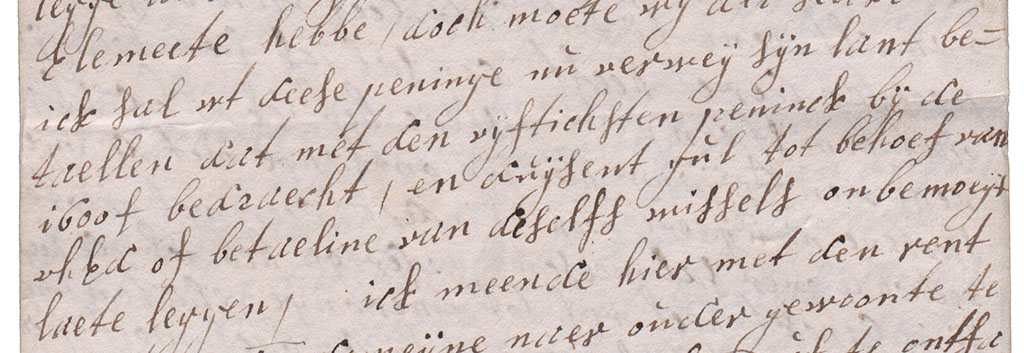 klemeete hebbe, doch moete wij
ick sal wt deese peninge nu verweij sijn lant be=
taellen dat met den vijftichsten peninck bij de
1600f bedraecht, en duijsent gul tot behoef van
of betaeline van deselfs wissels onbemoeijt
laete leggen, ick meende hier met den rent
naer ouder gewoonte te
te ontfa